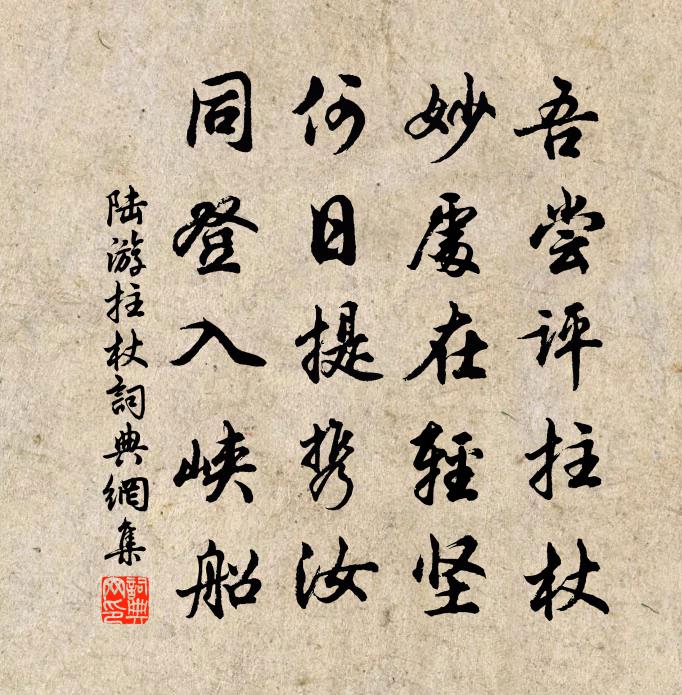 吾尝评拄杖
妙處在輕坚
何日提携汝
同登入峡船
陆游拄杖詞典網集
詞典网印